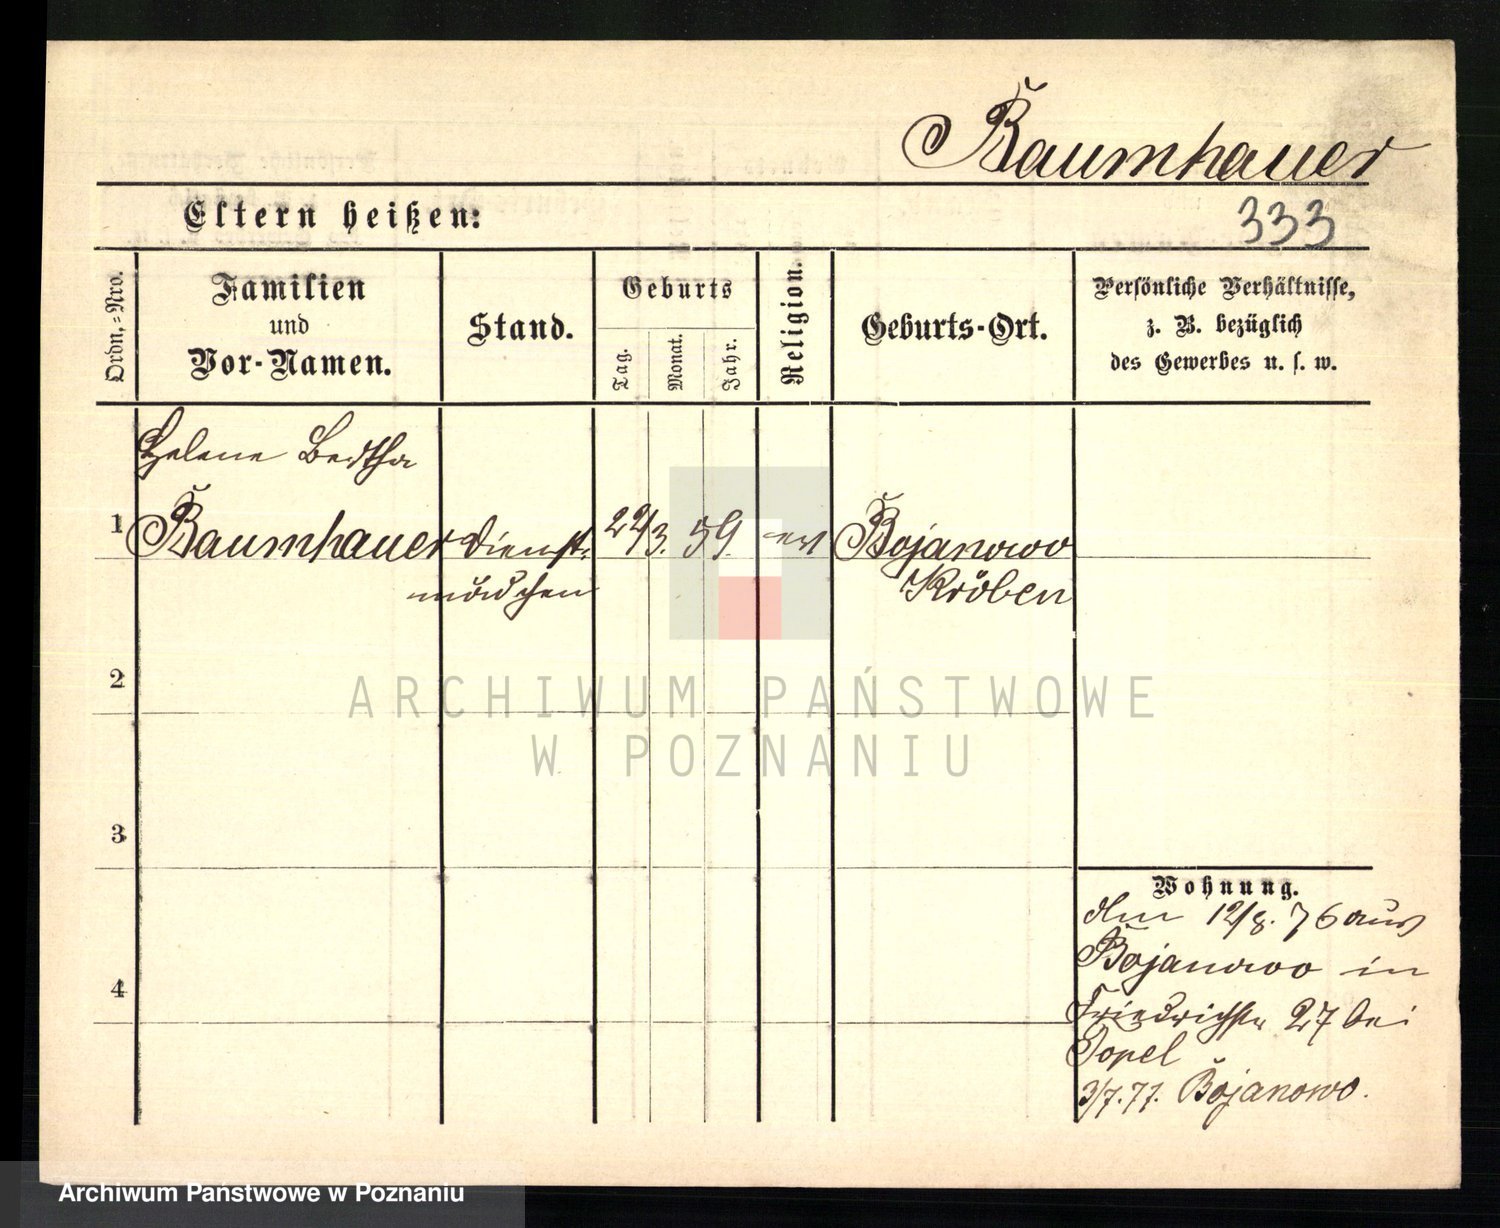 Baumhauer
Eltern heißen:
333
Ordn.-Nro.
Familien
und
Vor-Namen.
Stand.
Geburts
Tag.
Monat.
Jahr.
Religion.
Geburts-Ort.
Persönliche Verhältnisse,
z. B. bezüglich
des Gewerbes u. s. w.
Helene Bertha
1 Baumhauer Dienst- 22/3. 59. ev Bojanowo
mädchen Kröben
2
ARCHIWUM PAŃSTWOWE
W POZNANIU
3
4
Wohnung.
12/8. 76 aus
Bojanowo in
Friedrichstr 27 bei
Topel
3/7. 77. Bojanowo.
Archiwum Państwowe w Poznaniu